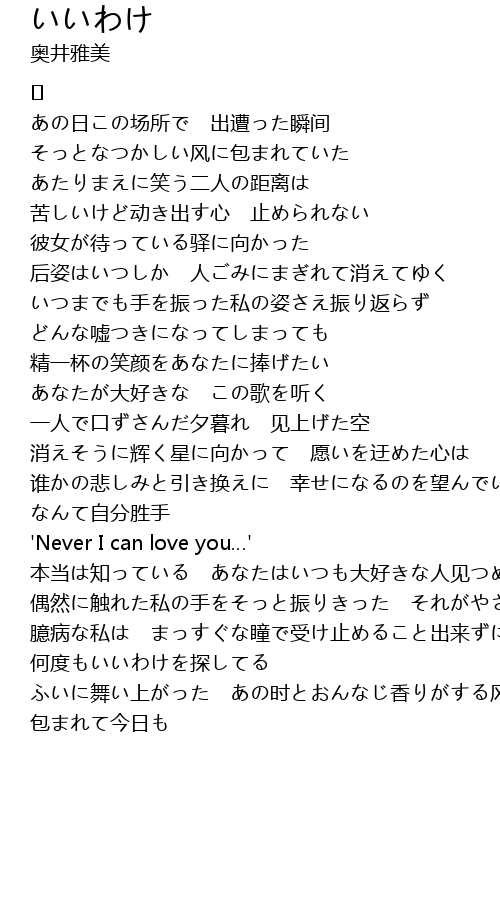 いいわけ
奥井雅美
[]
あの日この场所で　出遭った瞬间
そっとなつかしい风に包まれていた
あたりまえに笑う二人の距离は
苦しいけど动き出す心　止められない
彼女が待っている驿に向かった
后姿はいつしか　人ごみにまぎれて消えてゆく
いつまでも手を振った私の姿さえ振り返らず
どんな嘘つきになってしまっても
精一杯の笑颜をあなたに捧げたい
あなたが大好きな　この歌を听く
一人で口ずさんだ夕暮れ　见上げた空
消えそうに辉く星に向かって　愿いを迂めた心は
谁かの悲しみと引き换えに　幸せになるのを望んでい
なんて自分胜手
'Never I can love you...'
本当は知っている　あなたはいつも大好きな人见つめ
偶然に触れた私の手をそっと振りきった　それがやさ
臆病な私は　まっすぐな瞳で受け止めること出来ずに
何度もいいわけを探してる
ふいに舞い上がった　あの时とおんなじ香りがする风
包まれて今日も